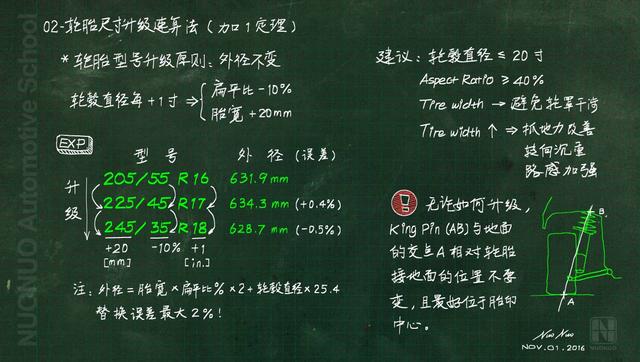 02-轮胎尺寸升级速算法（加1定理）
* 轮胎型号升级原则：外径不变
轮毂直径每+1寸 ⇒ { 扁平比-10%
胎宽+20mm
EXP
型号 外径（误差）
升级
205/55 R16 631.9mm
225/45 R17 634.3mm (+0.4%)
245/35 R18 628.7mm (-0.5%)
+20 -10% +1
[mm] [in.]
注：外径=胎宽*扁平比%*2+轮毂直径*25.4
替换误差最大2%!
建议：轮毂直径≤20寸
Aspect Ratio ≥40%
Tire width → 避免轮罩干涉
Tire width ↑ ⇒ 抓地力改善
转向沉重
路感加强
! 无论如何升级，
King Pin (AB)与地面
的交点A相对轮胎
接地面的位置不要
变，且最好位于胎印
中心。
B
A
Nuo Nuo
NOV.01.2016
NUONUO
NUONUO Automotive School